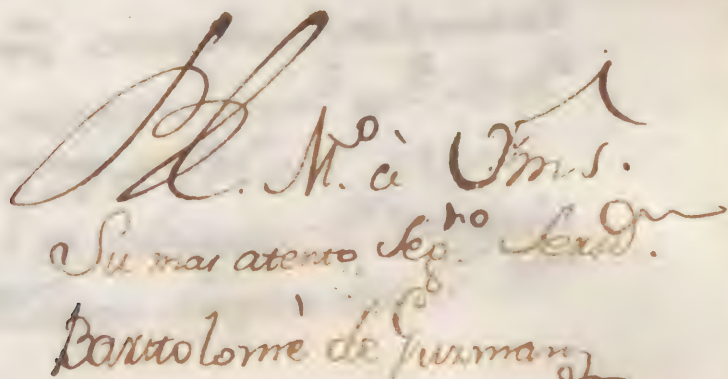 B. L. M.º à Vm.s.
Su mas atento Seg.ro Serv.or
Bartolomè de Guzman